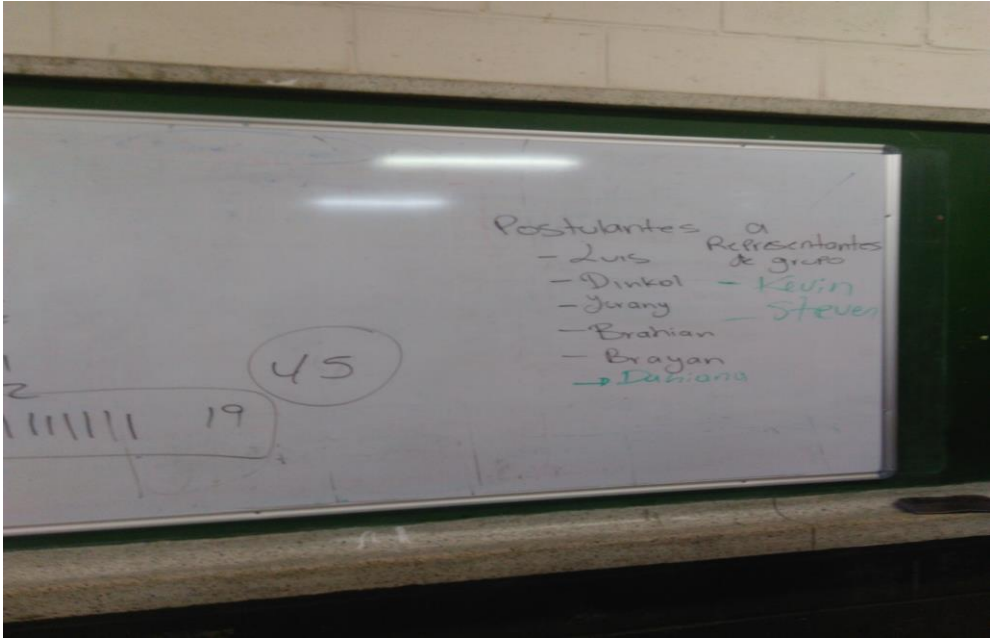 Postulantes a
Representantes
de grupo
- Luis
- Dinkol - Kevin
- Yurany - Steven
- Brahian
- Brayan
→ Daniana
45
2
19